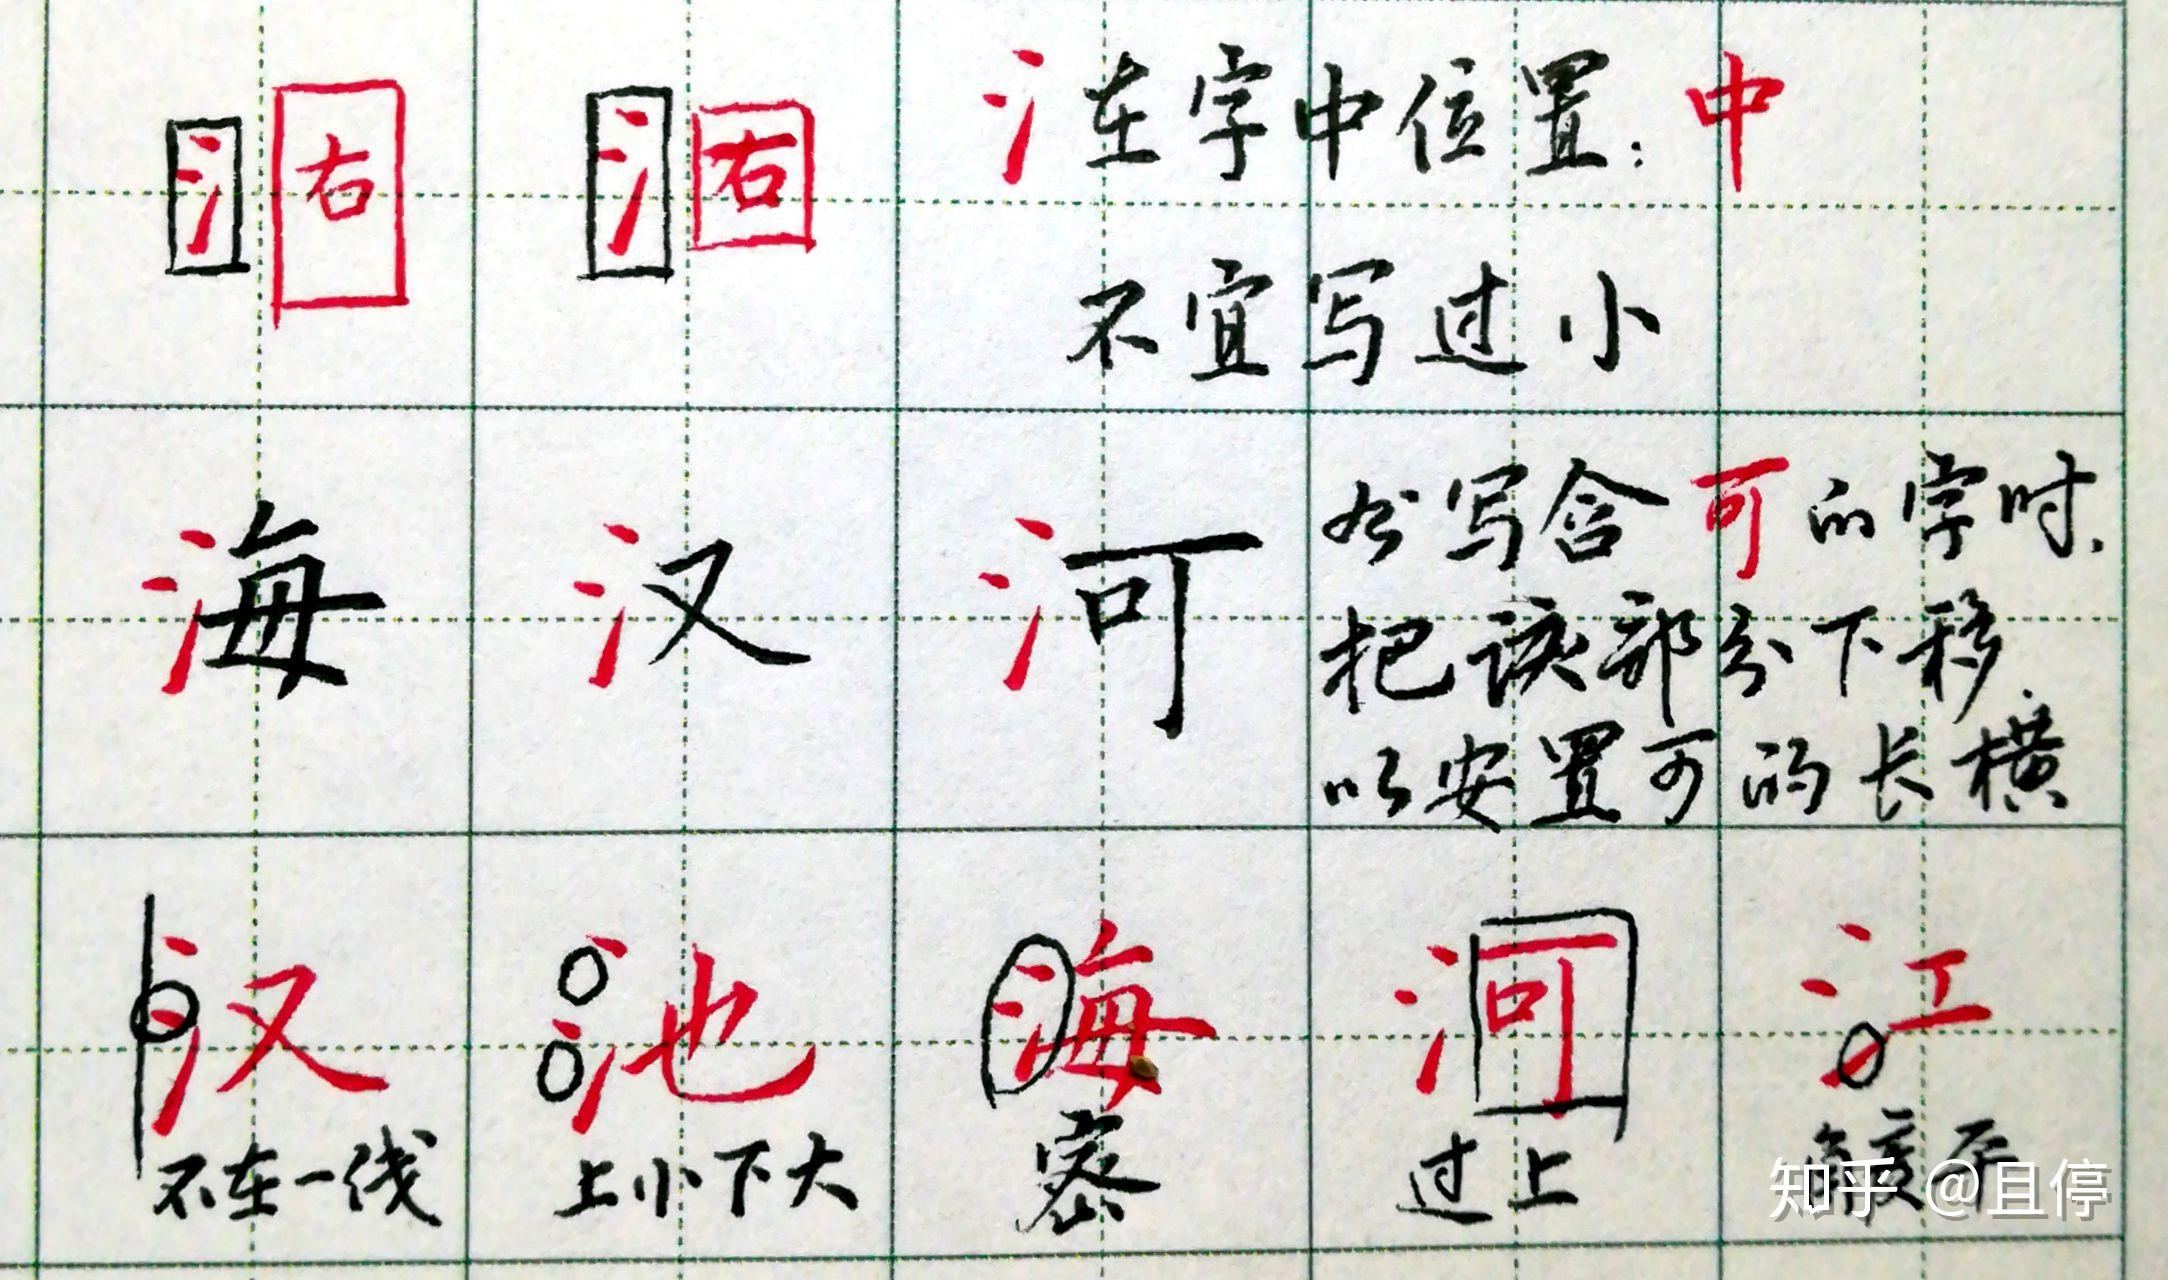 氵右 氵右 氵在字中位置：中
不宜写过小
海 汉 河 书写含可的字时，
把该部分下移，
以安置可的长横
汉 池 海 河 江
不在一线 上小下大 密 过上 角度平
知乎 @且停